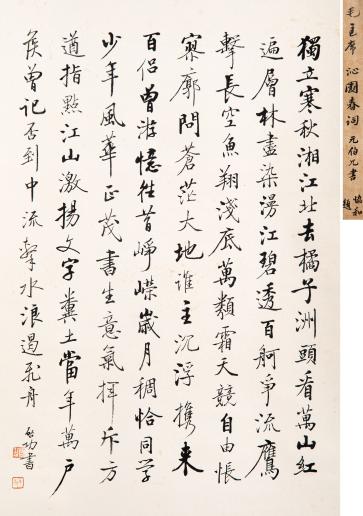 毛主席 沁園春词 元伯兄書
獨立寒秋湘江北去橘子洲頭看萬山紅
遍層林盡染漫江碧透百舸爭流鷹
擊長空魚翔淺底萬類霜天競自由悵
寥廓問蒼茫大地誰主沉浮携来
百侣曾游憶往昔崢嶸歲月稠恰同学
少年風華正茂書生意氣揮斥方
遒指點江山激揚文字糞土當年萬户
侯曾記否到中流擊水浪遏飛舟
啟功書